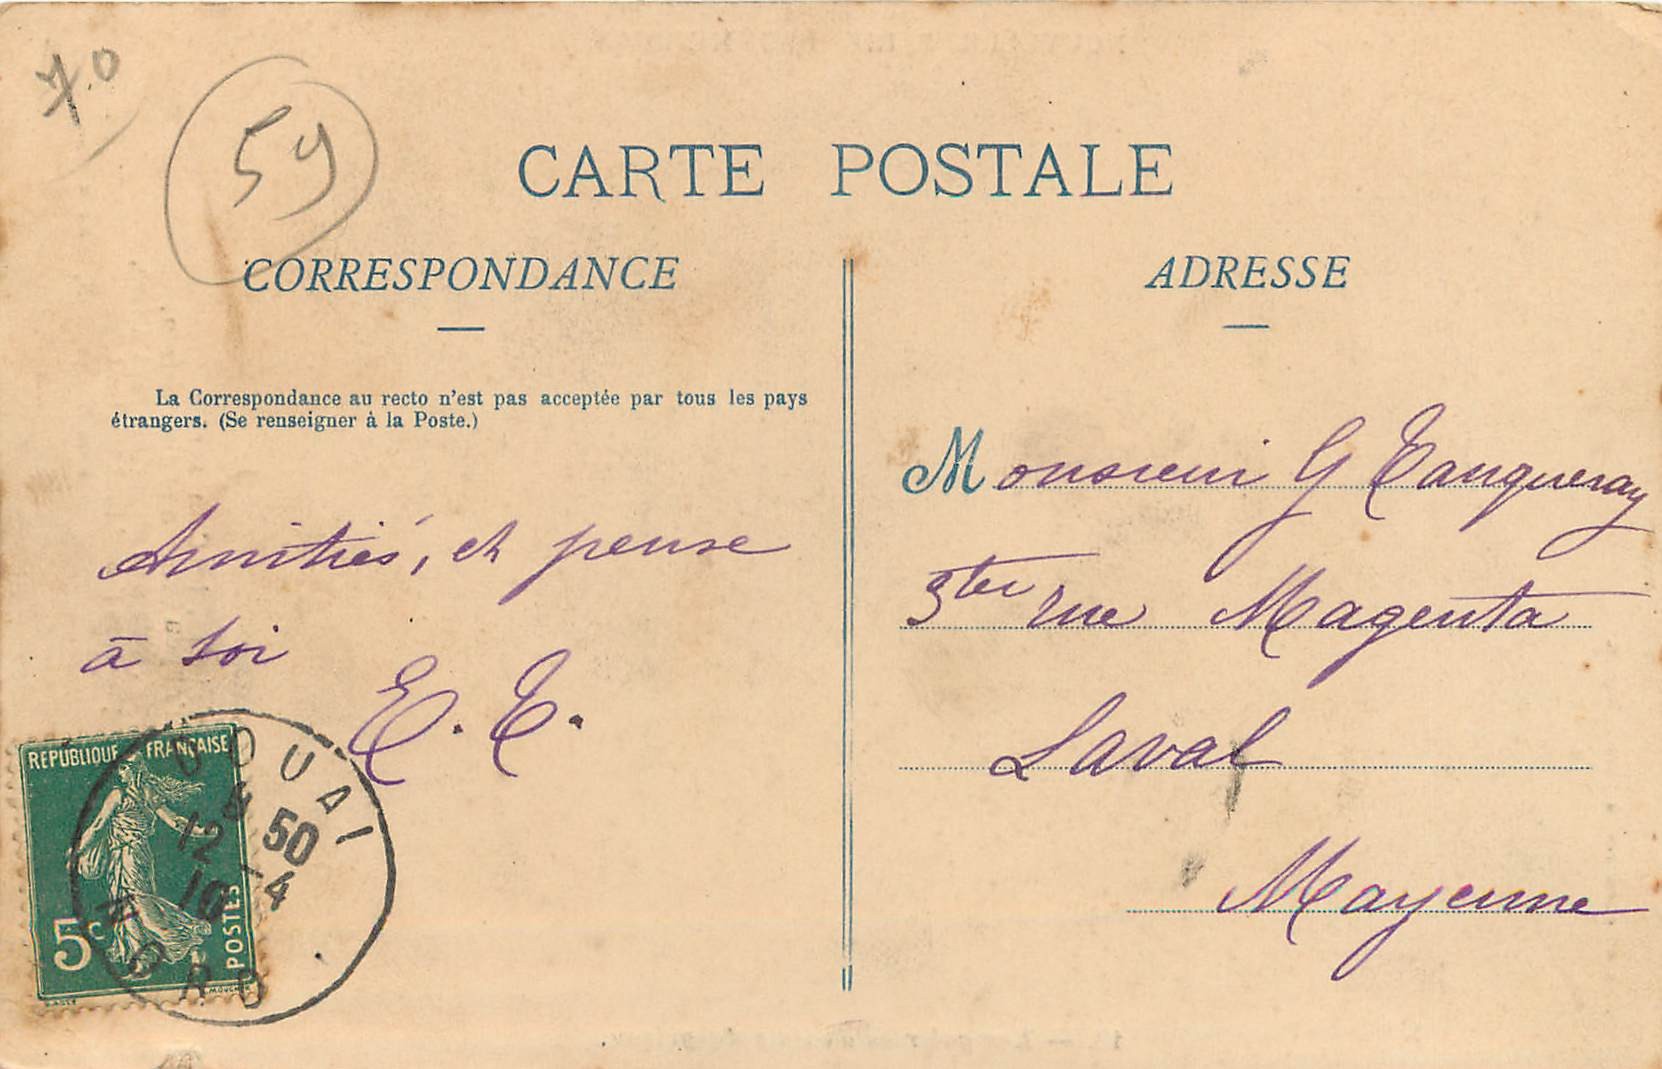 70
59
CARTE POSTALE
CORRESPONDANCE
La Correspondance au recto n'est pas acceptée par tous les pays
étrangers. (Se renseigner à la Poste.)
Amitiés, et pense
à toi
E. T.
REPUBLIQUE FRANÇAISE
5c
POSTES
DOUAI
12 50
10 -4
NORD
ADRESSE
Monsieur G Tanqueray
3ter rue Magenta
Laval
Mayenne